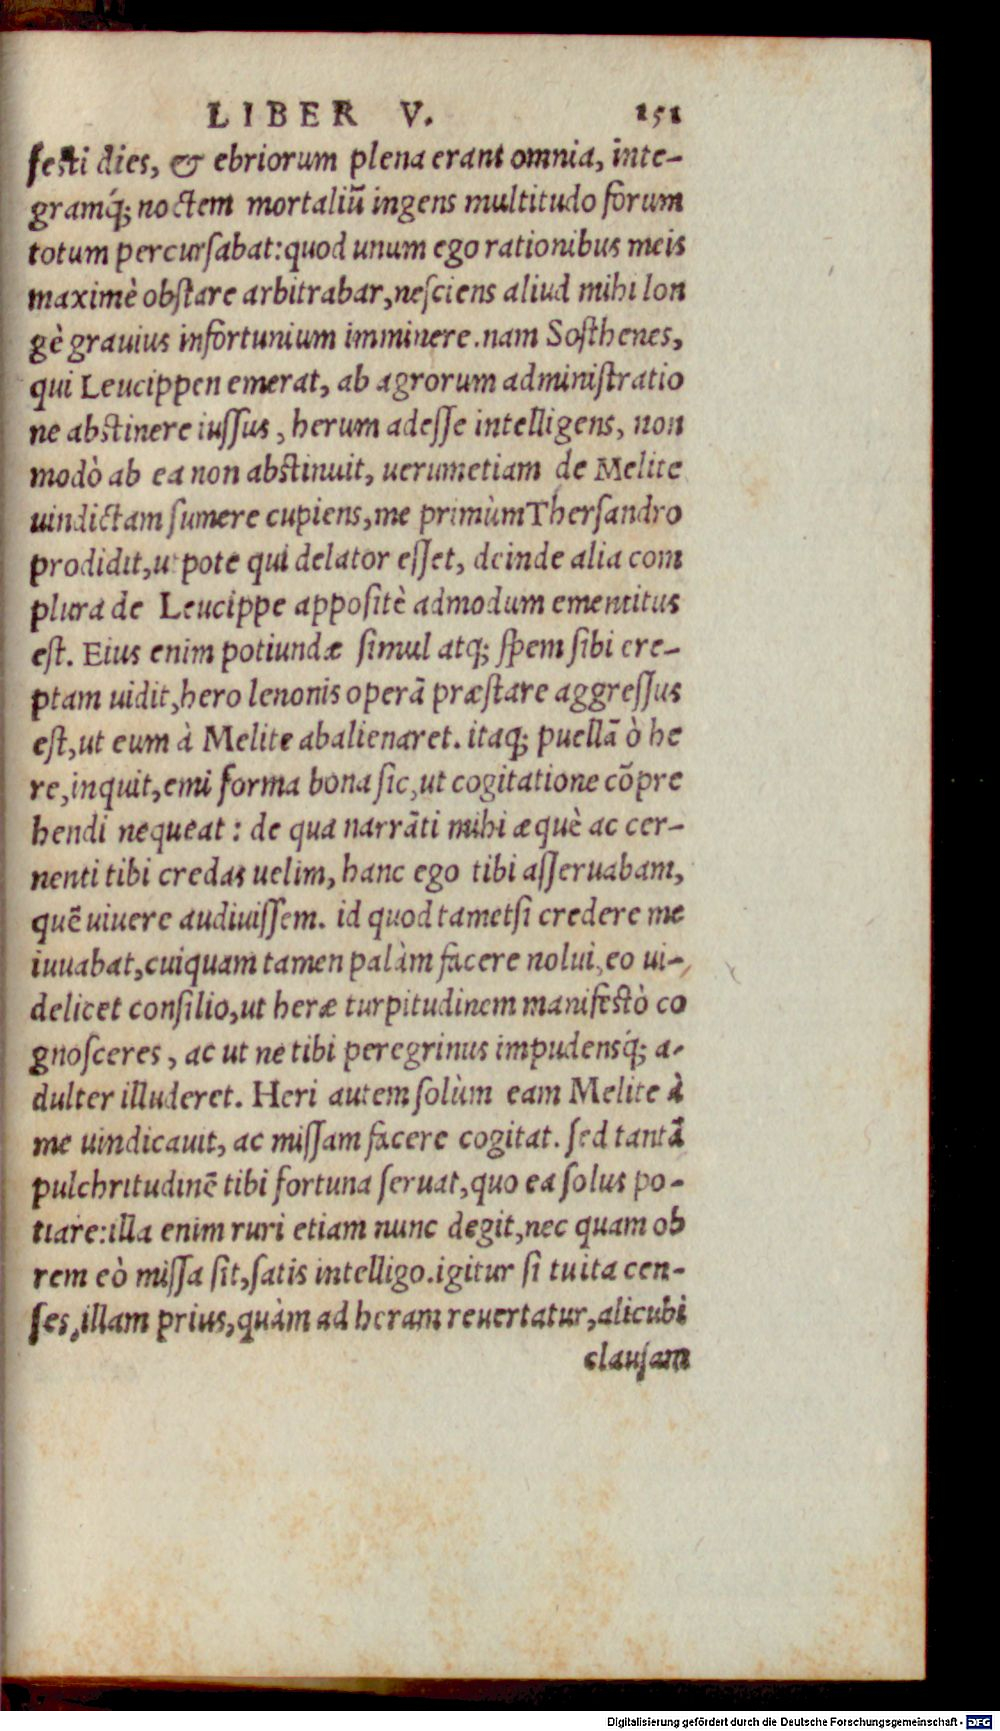 LIBER V. 151
festi dies, & ebriorum plena erant omnia, inte-
gramq́; noctem mortaliū ingens multitudo forum
totum percursabat: quod unum ego rationibus meis
maximè obstare arbitrabar, nesciens aliud mihi lon
gè grauius infortunium imminere. nam Sosthenes,
qui Leucippen emerat, ab agrorum administratio
ne abstinere iussus, herum adesse intelligens, non
modò ab ea non abstinuit, uerumetiam de Melite
uindictam sumere cupiens, me primùm Thersandro
prodidit, ut pote qui delator esset, deinde alia com
plura de Leucippe appositè admodum ementitus
est. Eius enim potiundæ simul atq; spem sibi ere-
ptam uidit, hero lenonis operā præstare aggressus
est, ut eum à Melite abalienaret. itaq; puellā ò he
re, inquit, emi forma bona sic, ut cogitatione cōpre
hendi nequeat: de qua narrāti mihi æquè ac cer-
nenti tibi credas uelim, hanc ego tibi asseruabam,
quē uiuere audiuissem. id quod tametsi credere me
iuuabat, cuiquam tamen palàm facere nolui, eo ui-
delicet consilio, ut heræ turpitudinem manifestò co
gnosceres, ac ut ne tibi peregrinus impudensq́; a-
dulter illuderet. Heri autem solùm eam Melite à
me uindicauit, ac missam facere cogitat. sed tantā
pulchritudinē tibi fortuna seruat, quo ea solus po-
tiare: illa enim ruri etiam nunc degit, nec quam ob
rem eò missa sit, satis intelligo. igitur si tu ita cen-
ses, illam prius, quàm ad heram reuertatur, alicubi
clausam
Digitalisierung gefördert durch die Deutsche Forschungsgemeinschaft - DFG